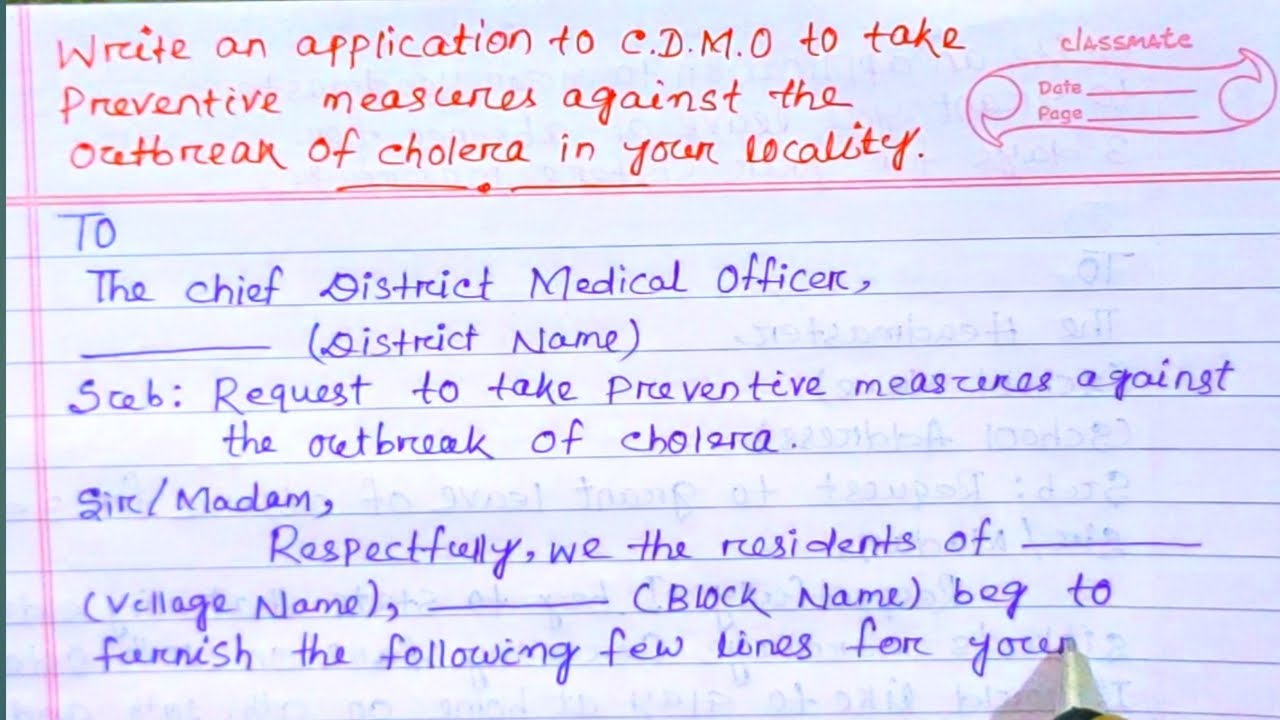 Write an application to C.D.M.O to take
Preventive measures against the
outbreak of cholera in your locality.
classmate
Date
Page
TO
The Chief District Medical Officer,
(District Name)
Sub: Request to take Preventive measures against
the outbreak of cholera.
Sir/Madam,
Respectfully, we the residents of
(Village Name), (Block Name) beg to
furnish the following few lines for your